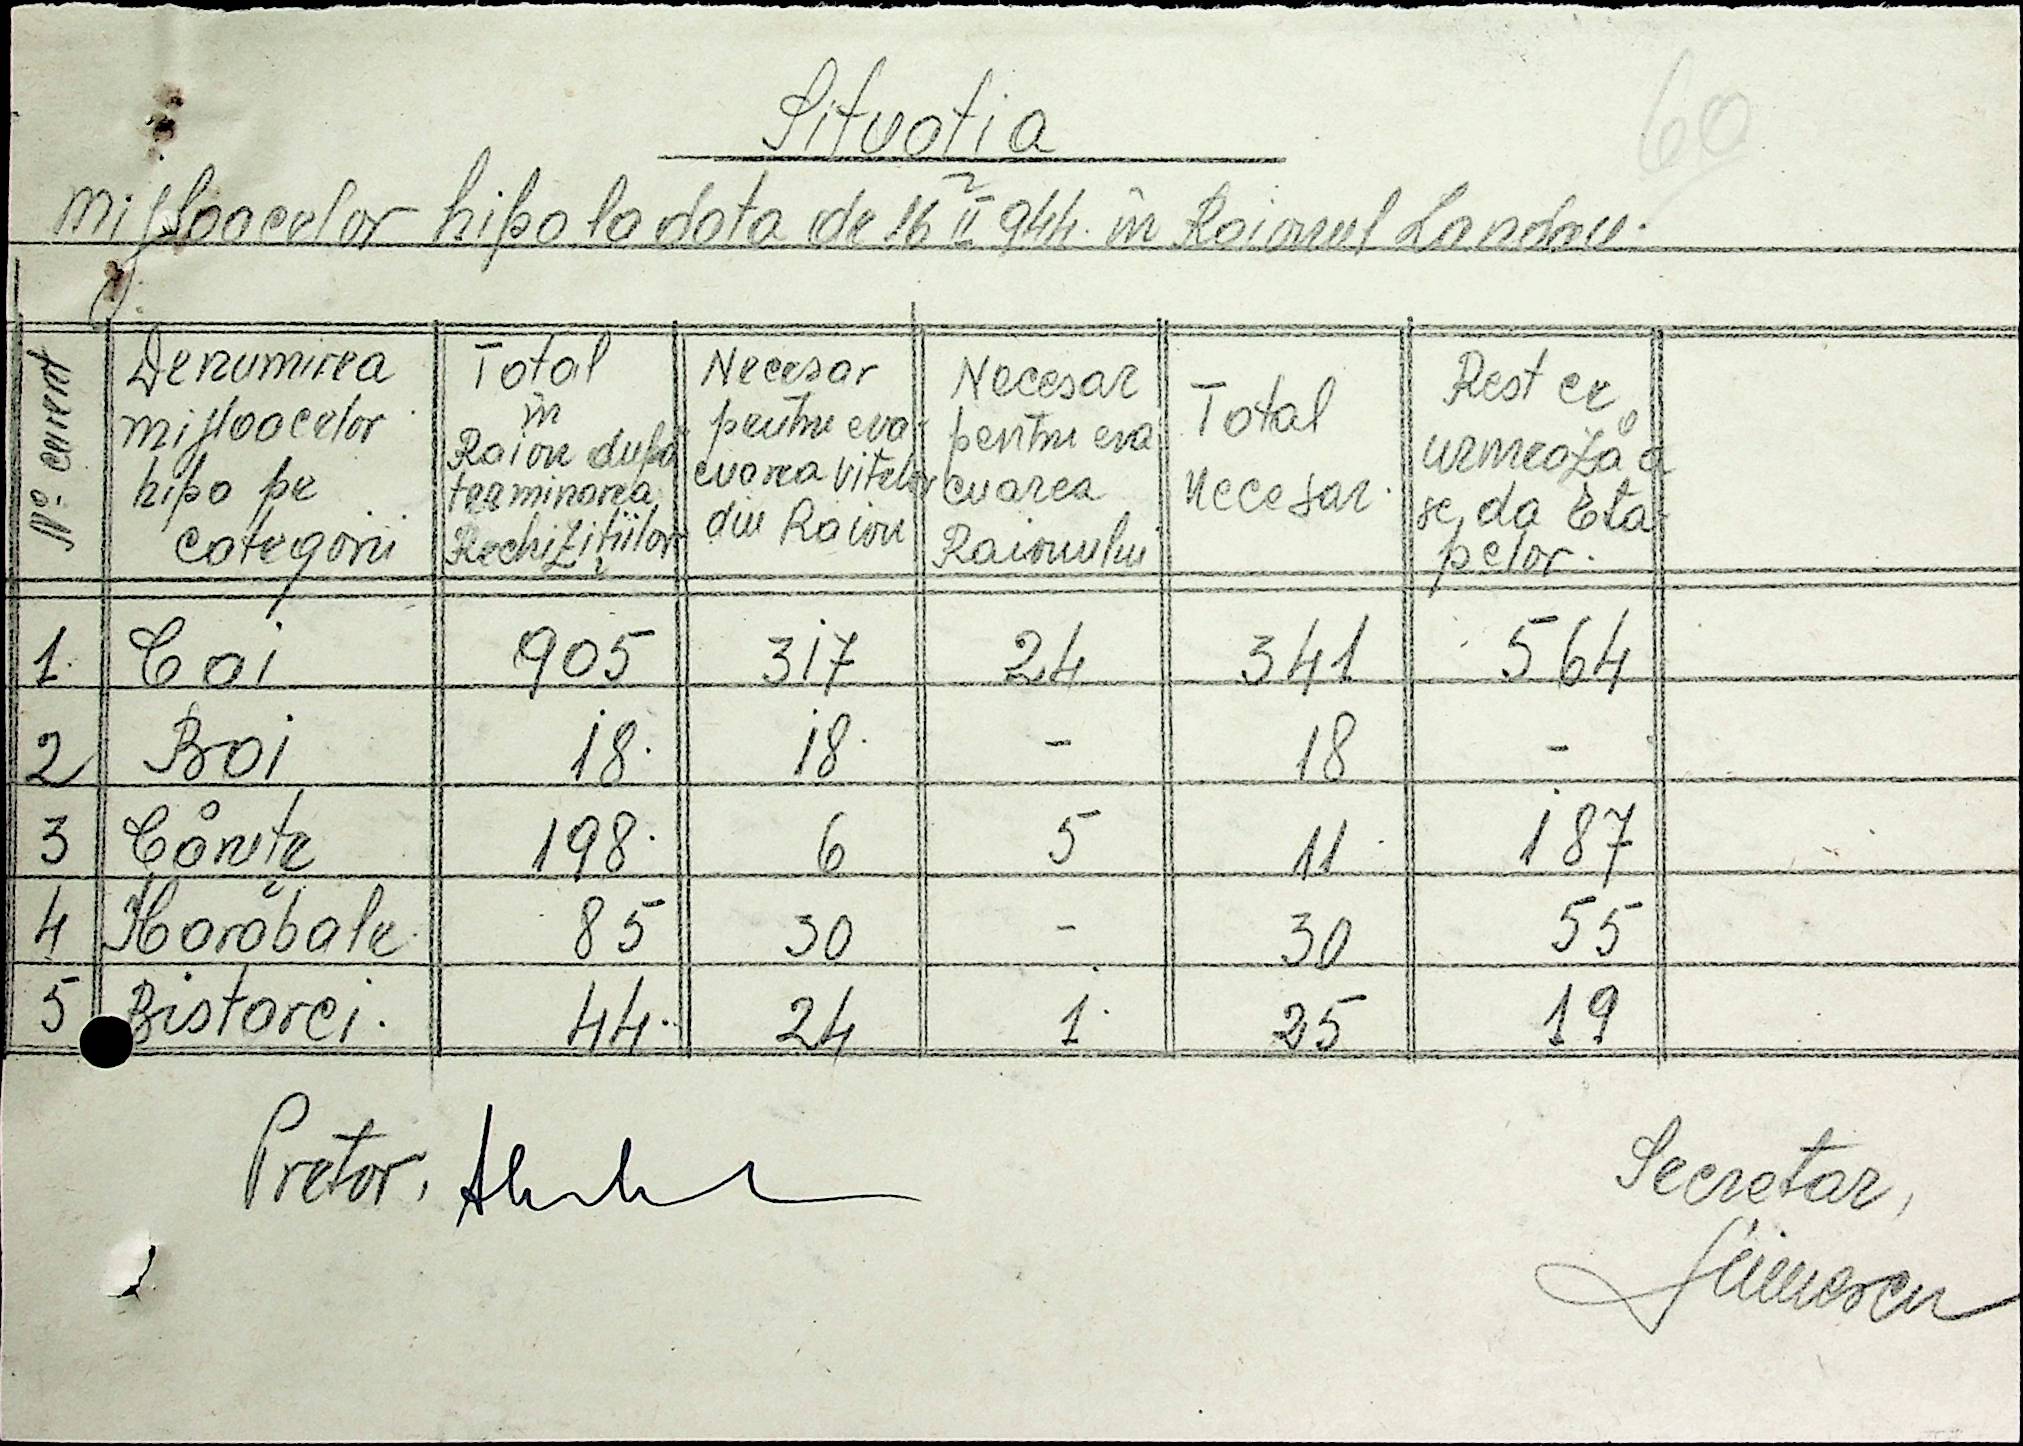 60
Situatia
mijloacelor hipo la data de 16 II 944. în Raionul Landau.
No. curent
Denumirea
mijloacelor
hipo pe
categorii
Total
în
Raion după
terminarea
Rechizițiilor
Necesar
pentru eva-
cuarea vitelor
din Raion
Necesar
pentru eva
cuarea
Raionului
Total
Necesar.
Rest ce
urmează a
se da Eta-
pelor.
1. Cai 905 317 24 341 564
2 Boi 18. 18. - 18 -
3 Căruțe 198. 6 5 11. 187
4 Harăbale. 85 30 - 30 55
5 Bistarci. 44. 24 1. 25 19
Pretor,
Secretar,